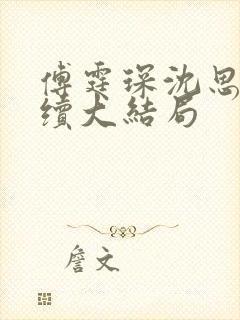 傅霆琛沈思
續大結局
詹文